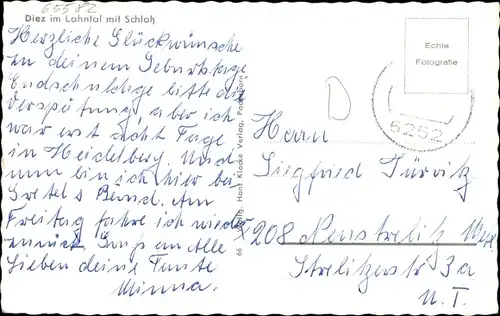 65582
Diez im Lahntal mit Schloß
Herzliche Glückwünsche
zu deinem Geburtstage
Endschuldige bitte die
Verspätung, aber ich
war erst acht Tage
in Heidelberg. Und
nun bin ich hier bei
Gretel & Bernd. Am
Freitag fahre ich wieder
zurück. Gruß an Alle
Lieben deine Tante
Minna.
66 Verlag Hans Klocke Verlag, Paderborn
Echte
Fotografie
6252
D
Herrn
Siegfried
208 Neustrelitz Meckl.
Strelitzerstr 3a